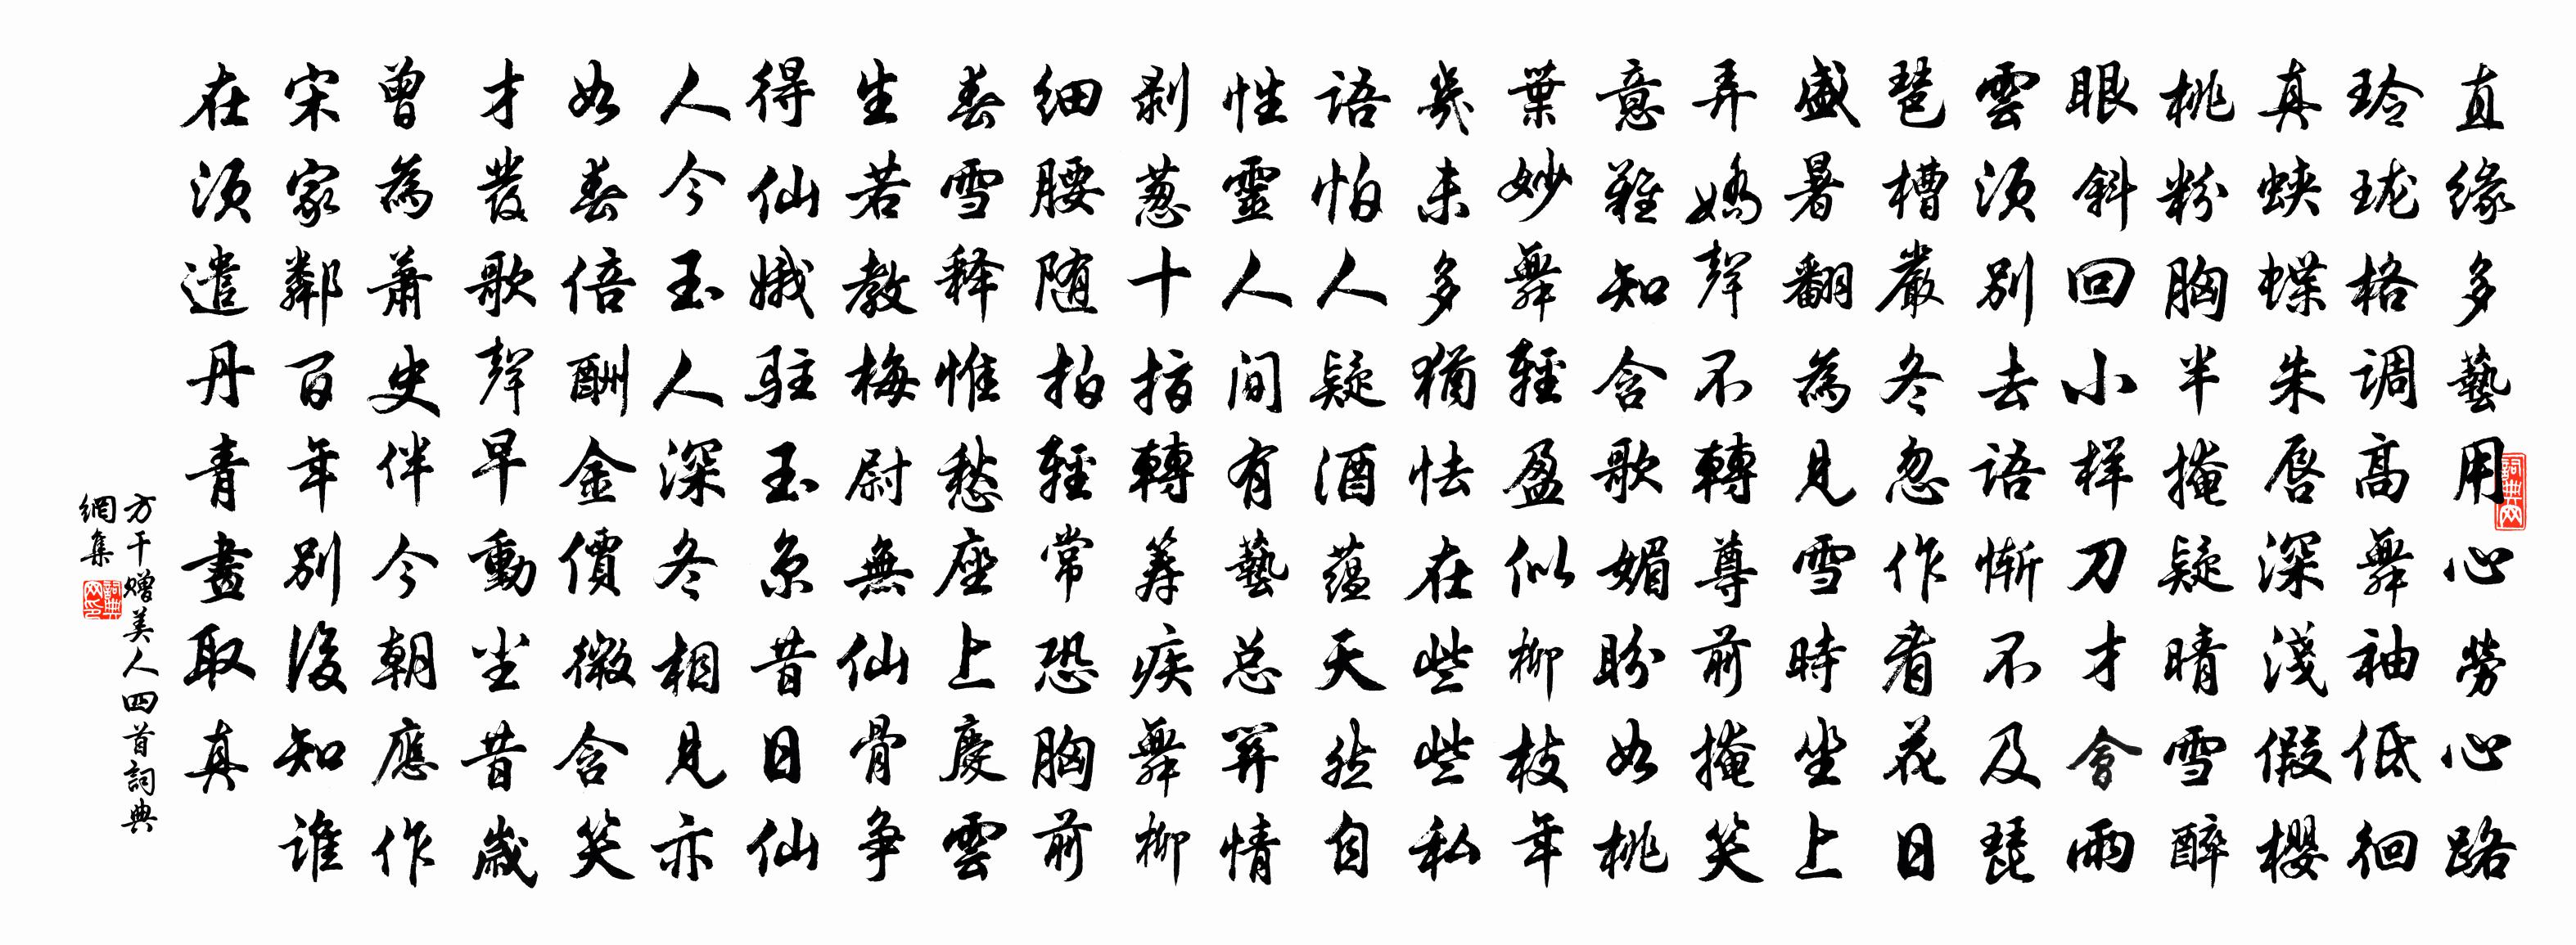 直缘多藝用心勞心路
玲珑格調高舞袖低徊
真蛺蝶朱唇深淺假櫻
桃粉胸半掩疑晴雪醉
眼斜回小样刀才會雨
雲須别去语慚不及琵
琶槽嚴冬忽作看花日
盛暑翻為見雪時坐上
弄嬌聲不轉尊前掩笑
意難知含歌媚盼如桃
葉妙舞輕盈似柳枝年
幾未多猶怯在些些私
语怕人疑酒蕴天然自
性靈人间有藝总關情
剥葱十指轉筹疾舞柳
细腰随拍輕常恐胸前
春雪释惟愁座上慶雲
生若教梅尉無仙骨争
得仙娥駐玉京昔日仙
人今玉人深冬相見亦
如春倍酬金價微含笑
才發歌聲早動塵昔歲
曾為萧史伴今朝應作
宋家鄰百年别後知谁
在須遣丹青畫取真
方干赠美人四首詞典
網集
詞典网
詞典网印